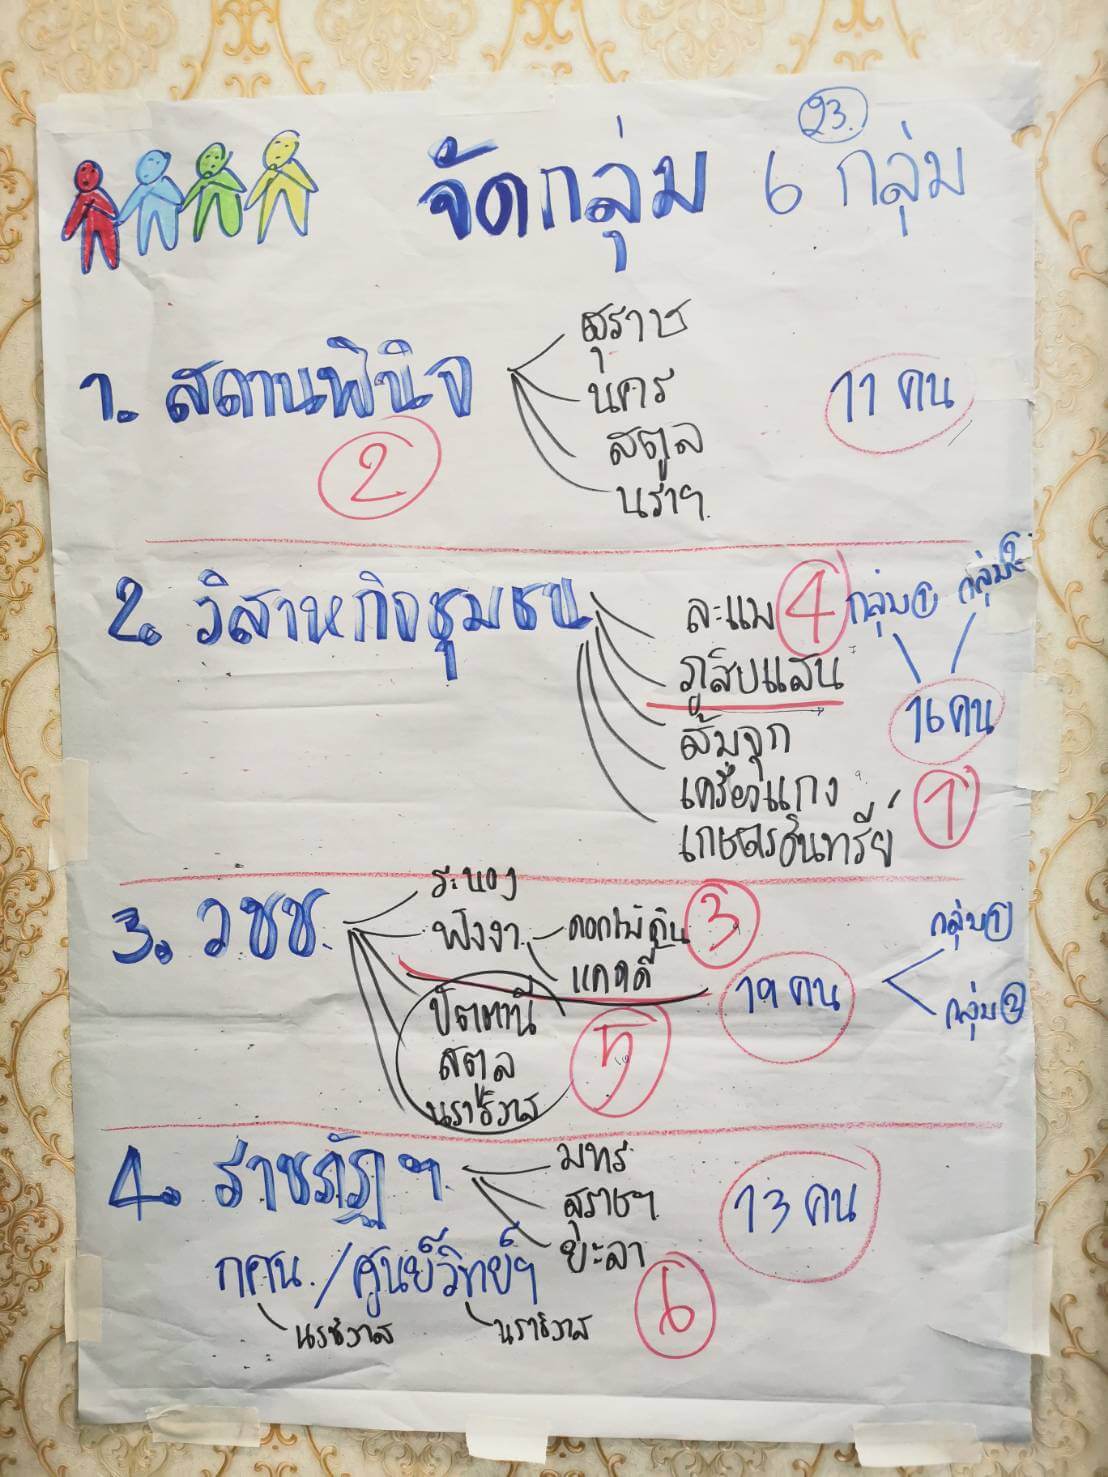 23.
จัดกลุ่ม 6 กลุ่ม
สุราษ
1. สถานพินิจ
นคร
11 คน
สตูล
2
นราฯ
2. วิสาหกิจชุมชน
ละแม 4 กลุ่ม① กลุ่ม②
ภูสิบแสน
16 คน
ส้มจุก
เครื่องแกง 1
เกษตรอินทรีย์
ระนอง
3. วชช.
พังงา
ดอกไม้ 3
กลุ่ม①
19 คน
ปัตตานี
กลุ่ม②
สตูล 5
นราธิวาส
4. ราชภัฏฯ
มทร
สุราษฯ
13 คน
ยะลา
กศน. / ศูนย์วิทย์ฯ
6
นราธิวาส นราธิวาส